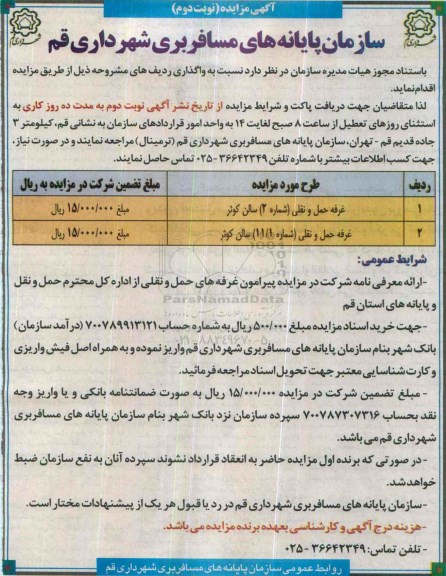 آگهی مزایده (نوبت دوم)
سازمان پایانه های مسافربری شهرداری قم
باستناد مجوز هیات مدیره سازمان در نظر دارد نسبت به واگذاری ردیف های مشروحه ذیل از طریق مزایده
اقدام نماید.
لذا متقاضیان جهت دریافت پاکت و شرایط مزایده از تاریخ نشر آگهی نوبت دوم به مدت ده روز کاری به
استثنای روزهای تعطیل از ساعت ۸ صبح لغایت ۱۴ به واحد امور قراردادهای سازمان به نشانی قم، کیلومتر ۳
جاده قدیم قم - تهران، سازمان پایانه های مسافربری شهرداری قم (ترمینال) مراجعه نمایند و در صورت نیاز،
جهت کسب اطلاعات بیشتر با شماره تلفن ۳۶۶۴۲۳۴۹-۰۲۵ تماس حاصل نمایند.
ردیف طرح مورد مزایده مبلغ تضمین شرکت در مزایده به ریال
۱ غرفه حمل و نقلی (شماره ۲) سالن کوثر مبلغ ۱۵/۰۰۰/۰۰۰ ریال
۲ غرفه حمل و نقلی (شماره ۱۱/۱) سالن کوثر مبلغ ۱۵/۰۰۰/۰۰۰ ریال
شرایط عمومی:
-ارائه معرفی نامه شرکت در مزایده پیرامون غرفه های حمل و نقلی از اداره کل محترم حمل و نقل
و پایانه های استان قم
ParsNamadData
-جهت خرید اسناد مزایده مبلغ ۵۰۰/۰۰۰ ریال به شماره حساب ۷۰۰۷۸۹۹۱۳۱۲۱ (درآمد سازمان)
بانک شهر بنام سازمان پایانه های مسافربری شهرداری قم واریز نموده و به همراه اصل فیش واریزی
و کارت شناسایی معتبر جهت تحویل اسناد مراجعه فرمائید.
- مبلغ تضمین شرکت در مزایده ۱۵/۰۰۰/۰۰۰ ریال به صورت ضمانتنامه بانکی و یا واریز وجه
نقد بحساب ۷۰۰۷۸۷۳۰۷۳۱۶ سپرده سازمان نزد بانک شهر بنام سازمان پایانه های مسافربری
شهرداری قم می باشد.
-در صورتی که برنده اول مزایده حاضر به انعقاد قرارداد نشوند سپرده آنان به نفع سازمان ضبط
خواهد شد.
-سازمان پایانه های مسافربری شهرداری قم در رد یا قبول هر یک از پیشنهادات مختار است.
-هزینه درج آگهی و کارشناسی بعهده برنده مزایده می باشد.
- تلفن تماس: ۳۶۶۴۲۳۴۹-۰۲۵
روابط عمومی سازمان پایانه های مسافربری شهرداری قم